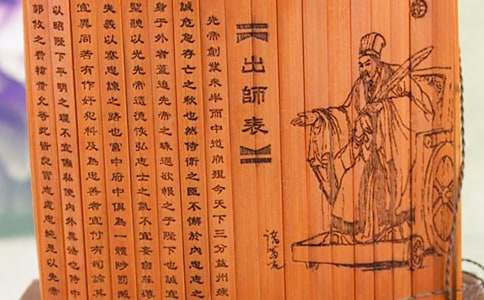 出師表
諸葛亮
先帝創業未半而中道崩殂今天下三分益州疲
誠危急存亡之秋也然侍衛之臣不懈於內忠志之
身于外者蓋追先帝之殊遇欲報之于陛下也誠宜
聖聽以光先帝遺德恢弘志士之氣不宜妄自菲薄
失義以塞忠諫之路也宮中府中俱為一體陟罰臧
宜異同若有作奸犯科及為忠善者宜付有司論其
以昭陛下平明之理不宜偏私使內外異法也侍中
郭攸之費禕董允等此皆良實志慮忠純是以先帝